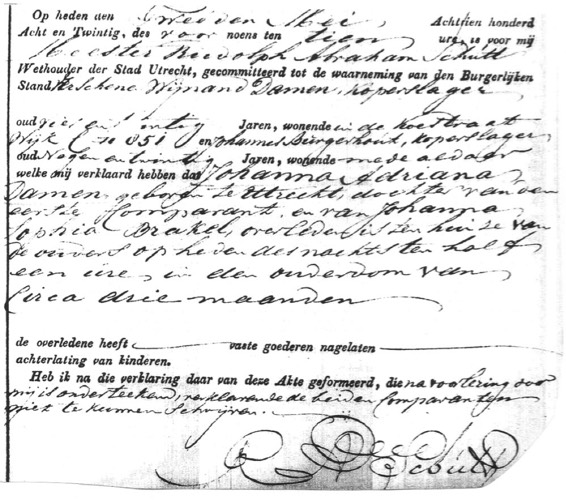 Op heden den Tweeden Mei Achttien honderd
Acht en Twintig, des voor noens ten tien ure, is voor mij
Meester Rudolph Abraham Schutt
Wethouder der Stad Utrecht, gecommitteerd tot de waarneming van den Burgerlijken
Stand Verschene Wijnand Damen, Koperslager,
oud Jaren, wonende in de
Wijk C no 851 en Johannes Burgerhout, Koperslager,
oud Negen en twintig Jaren, wonende mede aldaar
welke mij verklaard hebben dat Johanna Adriana
Damen, geboren te Utrecht, dochter van den
eerste Comparant, en van Johanna
Sophia Brakel, overleden is ten huize van
de ouders op heden des nachts ten half
een ure, in den ouderdom van
Circa drie maanden
de overledene heeft vaste goederen nagelaten
achterlating van kinderen.
Heb ik na die verklaring daar van deze Akte geformeerd, die na voorlezing door
mij is onderteekend, verklarende de beiden Comparanten
niet te kunnen Schrijven.
Schutt